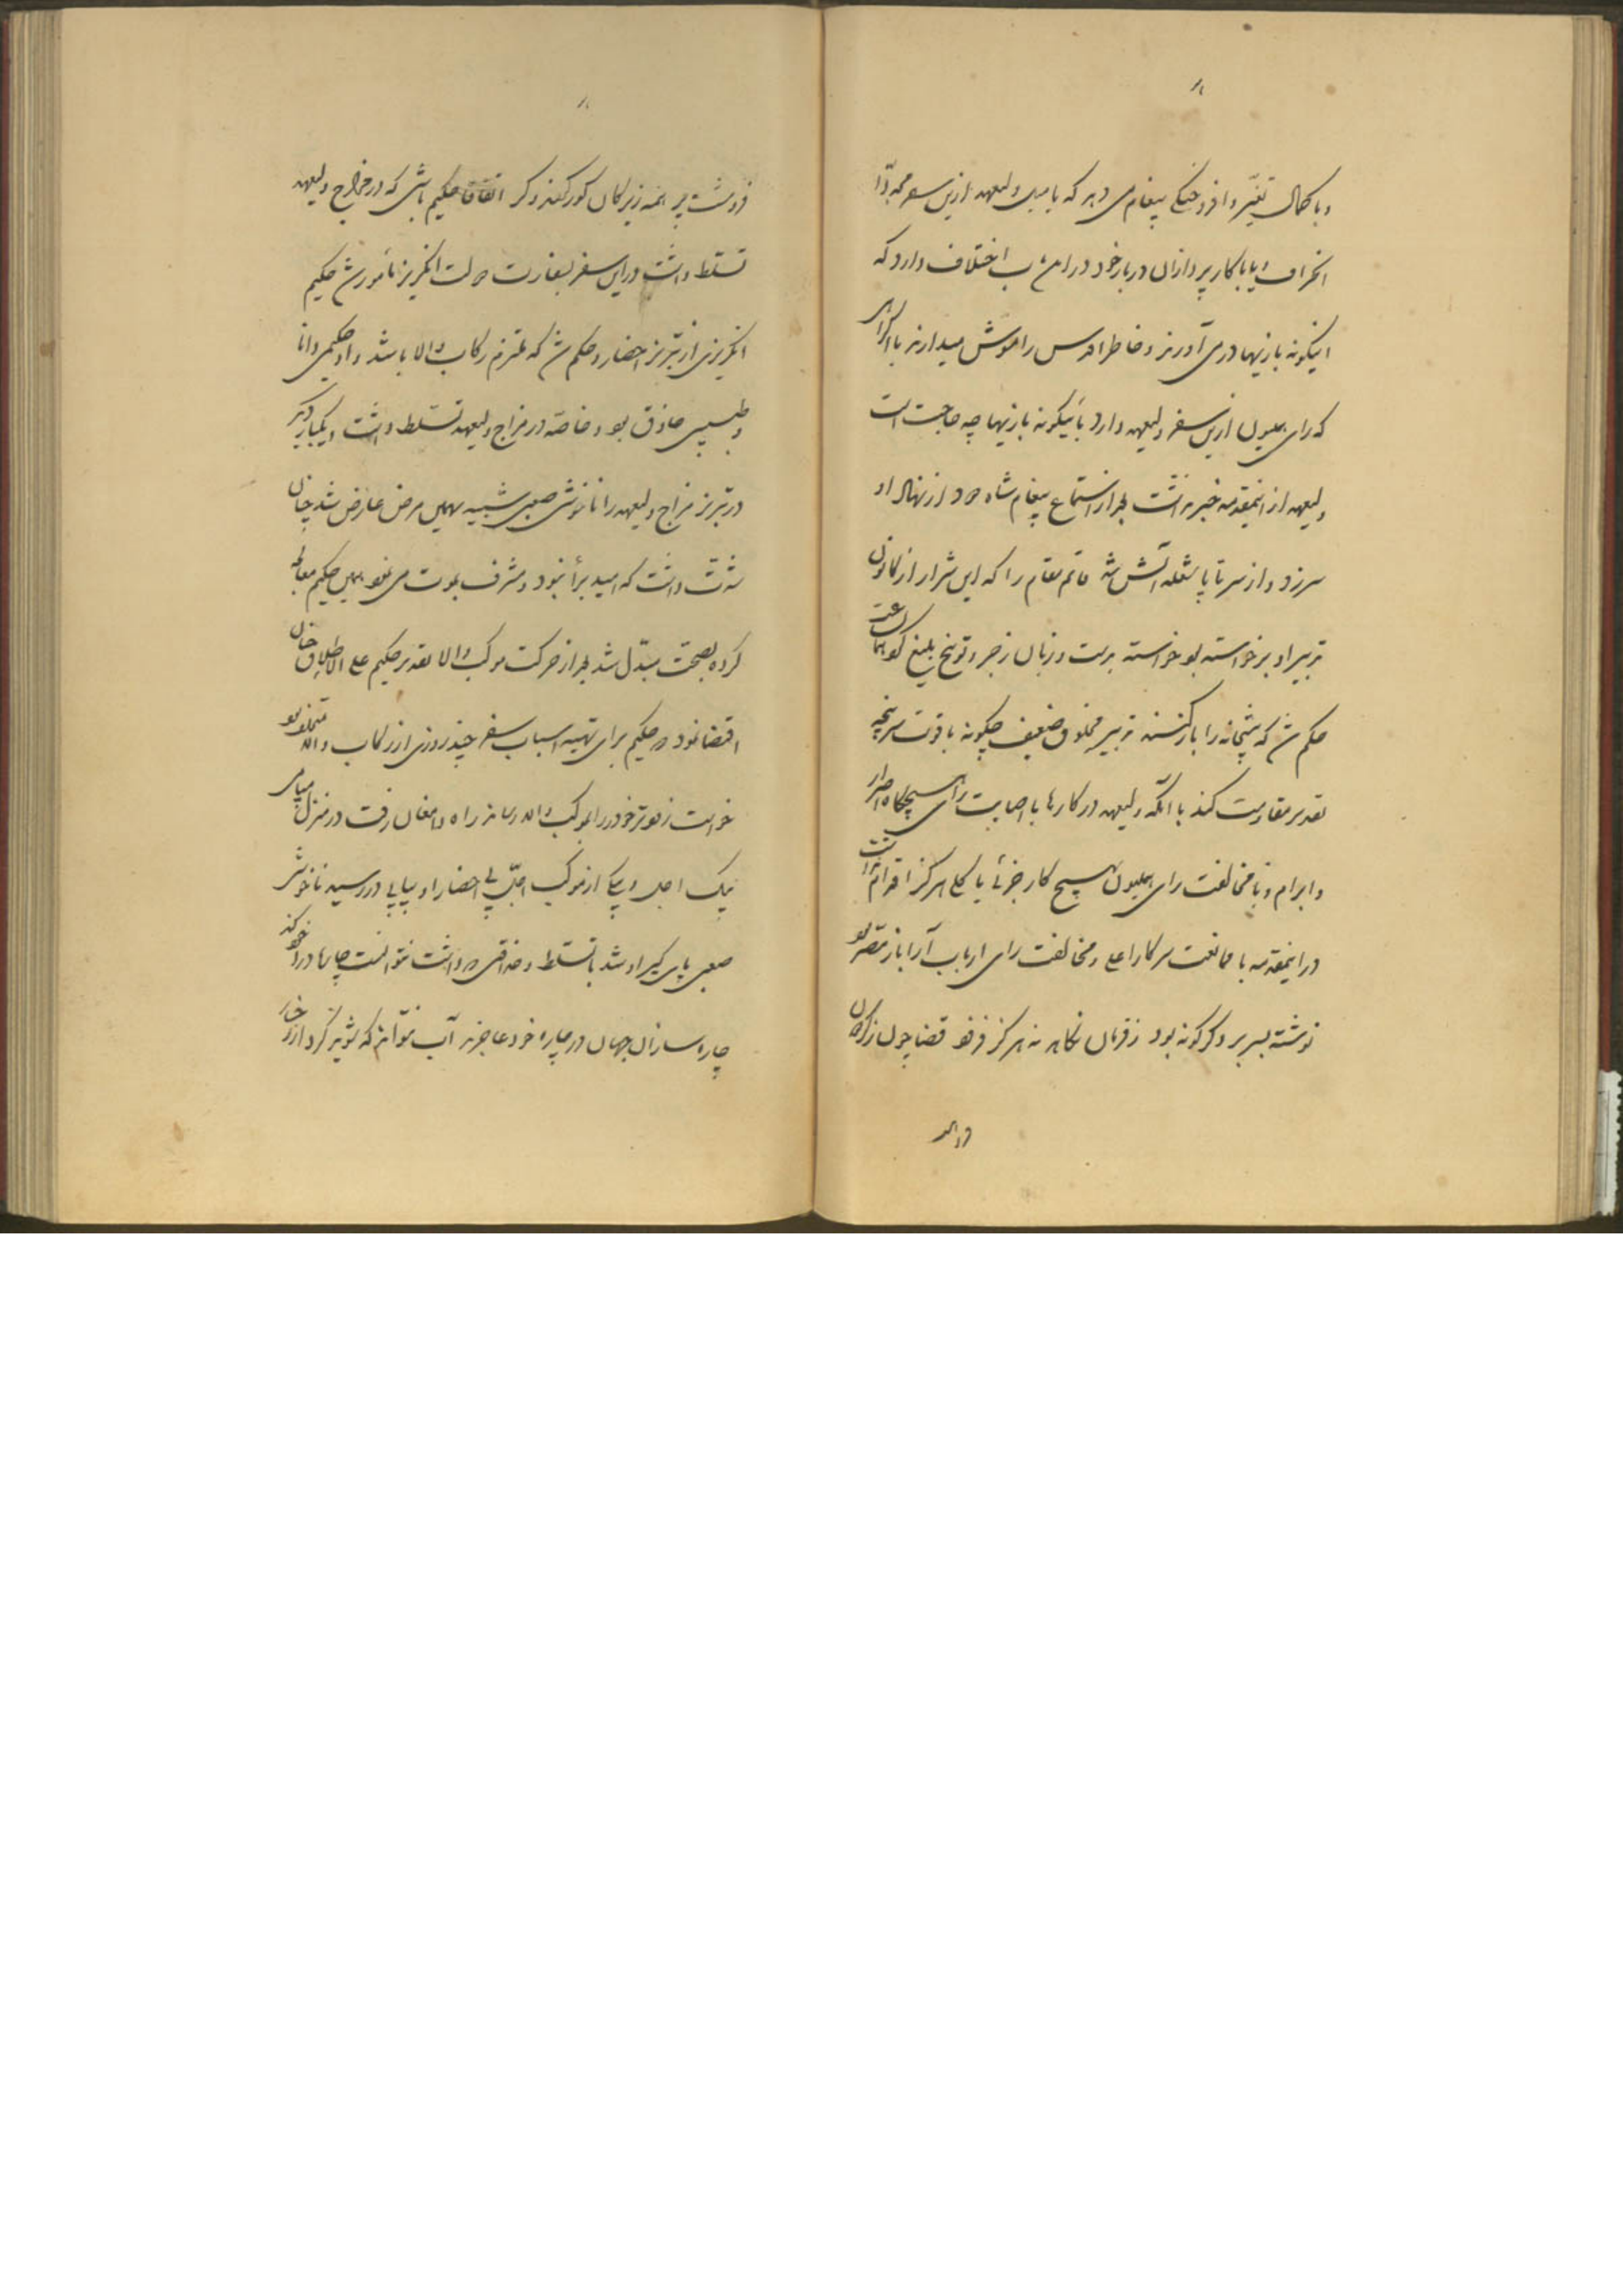 و با کمال تغیّر و افروختگی پیغام می دهد که با میل ولیعهد ازین سفر مجدّداً
انحراف و یا با کارپردازان دربار خود در این باب اختلاف دارد که
اینگونه بازیها در می آورند و خاطر اقدس را مشوش میدارند با اکراهی
که رای همیون ازین سفر ولیعهد دارد باینگونه بازیها چه حاجت است
ولیعهد از اینمقدمه خبر نداشت بعد از استماع پیغام شاه دود از نهاد او
سرزد و از سر تا پا شعله آتش شد قائم مقام را که این شرار از کانون
تدبیر او برخواسته بود خواسته بدست و زبان زجر و توبیخ بلیغ کرد همان ساعت
حکم شد که پیشخانه را بار کنند تدبیر مخلوق ضعیف چگونه با قوت سرپنجه
تقدیر مقاومت کند با آنکه ولیعهد در کارها با اصابت رای هیچگاه اصرار
و ابرام و با مخالفت رای همیون هیچ کار جزئی یا کلی هرگز اقدام نداشت
در اینمقدمه با ممانعت سرکار اعلی و مخالفت رای ارباب آرا باز مصر بود
نوشته بسر بر دگرگونه بود ز فرمان نکاهد نه هرگز فزود قضا چون ز گردون
فرو هشت پر همه زیرکان کور گشتند و کر اتفاقاً حکیم باشی که در مزاج ولیعهد
تسلط داشت در این سفر بسفارت دولت انگریز مأمور شد حکیم
انگریزی از تبریز احضار و حکم شد که ملتزم رکاب والا باشد و او حکیمی دانا
و طبیبی حاذق بود و خاصّه در مزاج ولیعهد تسلّط داشت و یکبار دیگر
در تبریز مزاج ولیعهد را ناخوشی صعبی شبیه بهمین مرض عارض شد چنان
شدّت داشت که امید برأ نبود و مشرف بموت می نمود همین حکیم معالجه
کرده بصحّت مبدّل شد بعد از حرکت موکب والا تقدیر حکیم علی الاطلاق چنان
اقتضا نمود که حکیم برای تهیه اسباب سفر چند روزی از رکاب والا متخلف بود
خواست زودتر خود را بموکب والا رساند از راه دامغان رفت در منزل میامی
پیک اجل و پیکی از موکب اجلّ پی احضار او پیاپی در رسید ناخوشی
صعبی پای گیر او شد با تسلط و حذاقتی که داشت نتوانست چاره درد خود کند
چاره سازان جهان در چاره خود عاجزند آب نتواند که شوید گرد از رخسار